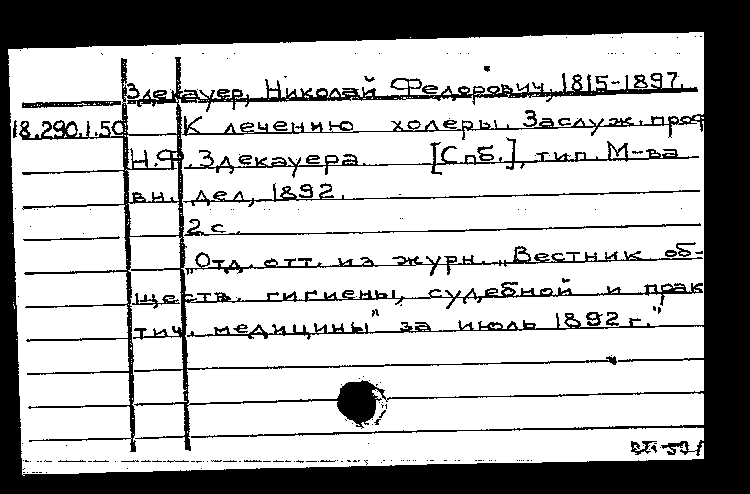 Здекауер, Николай Федорович, 1815-1897.
18.290.1.50 К лечению холеры. Заслуж. проф
Н.Ф. Здекауера. [Спб.], тип. М-ва
вн. дел, 1892.
2 с.
„Отд. отт. из журн. „Вестник об-
ществ. гигиены, судебной и прак
тич. медицины" за июль 1892 г."